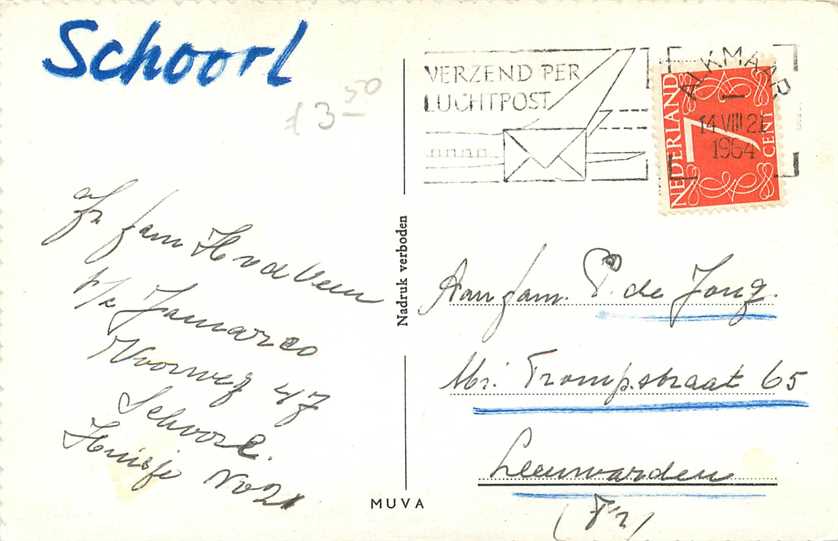 Schoorl
£ 3 50
VERZEND PER
LUCHTPOST
ALKMAAR
14 VIII 21
1964
NEDERLAND
7
CENT
Afz fam H v d Veen
p/a Jamarco
Voorweg 47
Schoorl.
Huisje No 21
Nadruk verboden
MUVA
Aan fam. P. de Jong.
Mr. Trompstraat 65
Leeuwarden
(Fr)